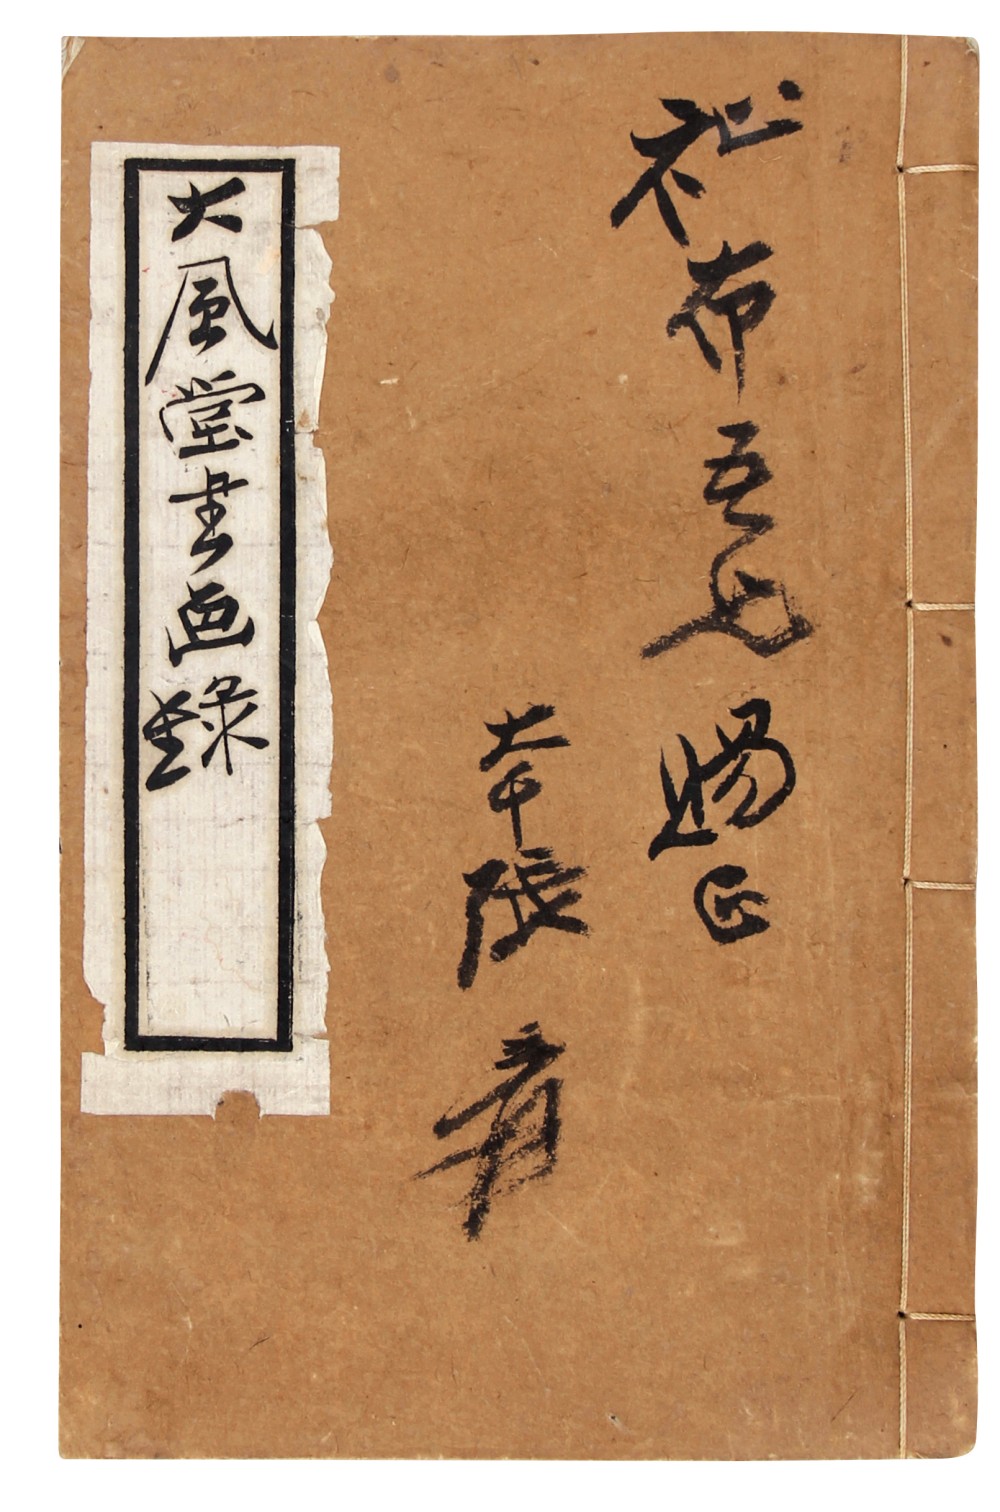 布吾兄賜正
大千張爰
大風堂書画錄